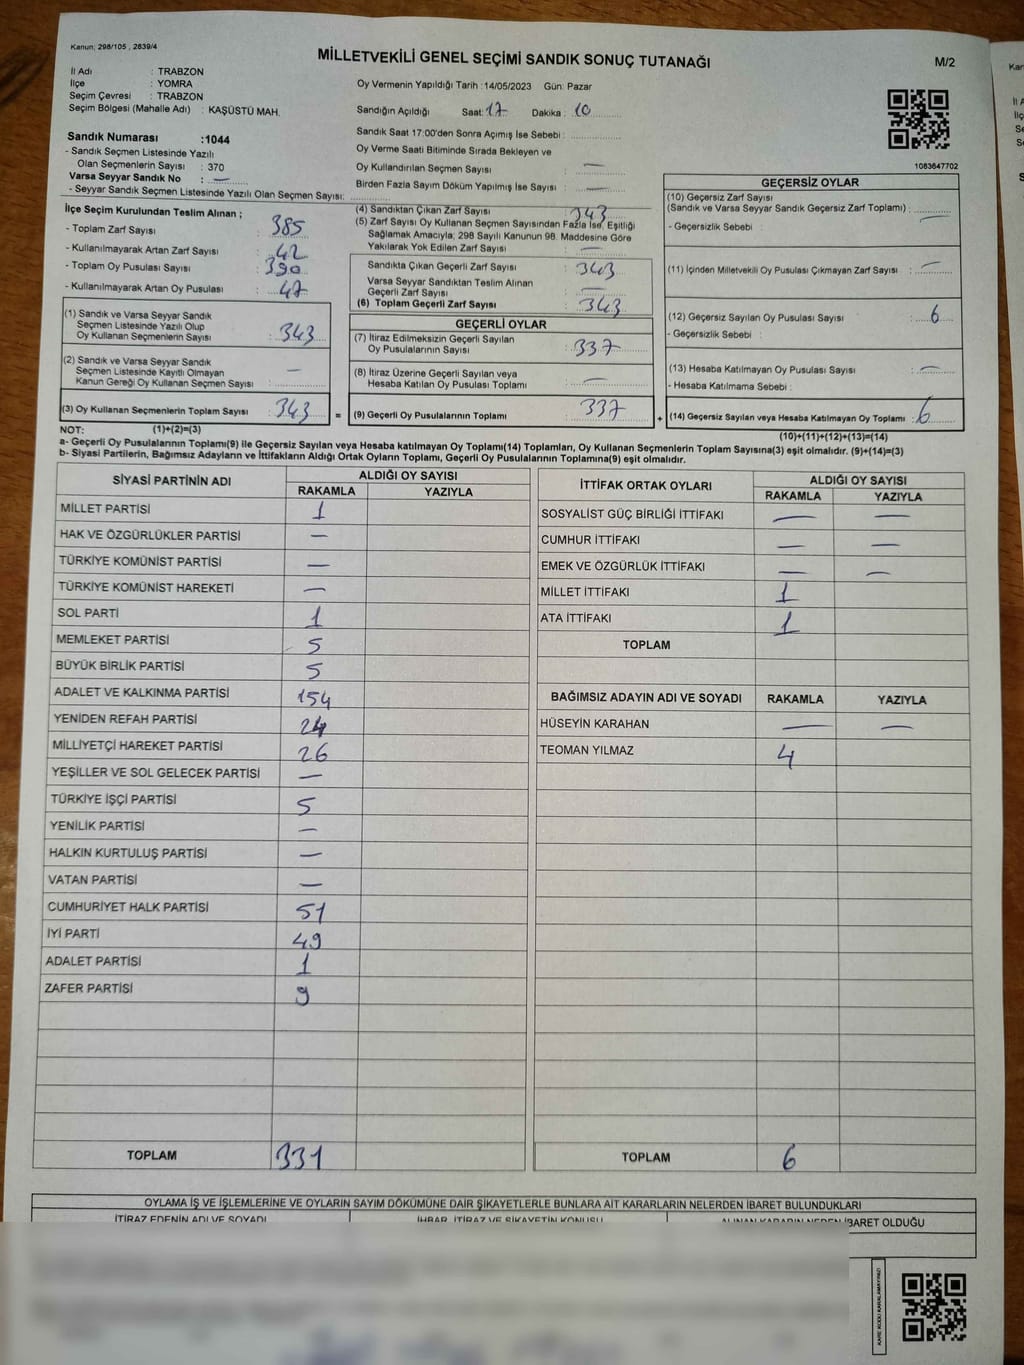 Kanun; 298/105 , 2839/4
MİLLETVEKİLİ GENEL SEÇİMİ SANDIK SONUÇ TUTANAĞI
M/2
İl Adı : TRABZON
İlçe : YOMRA
Seçim Çevresi : TRABZON
Seçim Bölgesi (Mahalle Adı) : KAŞÜSTÜ MAH.
Oy Vermenin Yapıldığı Tarih :14/05/2023 Gün: Pazar
Sandığın Açıldığı Saat: 17 Dakika : 10
Sandık Saat 17:00'den Sonra Açımış İse Sebebi :
Oy Verme Saati Bitiminde Sırada Bekleyen ve
Oy Kullandırılan Seçmen Sayısı : —
Birden Fazla Sayım Döküm Yapılmış İse Sayısı : —
1083647702
Sandık Numarası :1044
- Sandık Seçmen Listesinde Yazılı
Olan Seçmenlerin Sayısı : 370
Varsa Seyyar Sandık No : —
- Seyyar Sandık Seçmen Listesinde Yazılı Olan Seçmen Sayısı:
İlçe Seçim Kurulundan Teslim Alınan ;
- Toplam Zarf Sayısı : 385
- Kullanılmayarak Artan Zarf Sayısı : 42
- Toplam Oy Pusulası Sayısı : 390
- Kullanılmayarak Artan Oy Pusulası : 47
(1) Sandık ve Varsa Seyyar Sandık
Seçmen Listesinde Yazılı Olup
Oy Kullanan Seçmenlerin Sayısı : 343
(2) Sandık ve Varsa Seyyar Sandık
Seçmen Listesinde Kayıtlı Olmayan
Kanun Gereği Oy Kullanan Seçmen Sayısı : —
(3) Oy Kullanan Seçmenlerin Toplam Sayısı : 343 =
(4) Sandıktan Çıkan Zarf Sayısı : 343
(5) Zarf Sayısı Oy Kullanan Seçmen Sayısından Fazla İse, Eşitliği
Sağlamak Amacıyla, 298 Sayılı Kanunun 98. Maddesine Göre
Yakılarak Yok Edilen Zarf Sayısı : —
Sandıkta Çıkan Geçerli Zarf Sayısı : 343
Varsa Seyyar Sandıktan Teslim Alınan
Geçerli Zarf Sayısı : —
(6) Toplam Geçerli Zarf Sayısı : 343
GEÇERLİ OYLAR
(7) İtiraz Edilmeksizin Geçerli Sayılan
Oy Pusulalarının Sayısı : 337
(8) İtiraz Üzerine Geçerli Sayılan veya
Hesaba Katılan Oy Pusulası Toplamı : —
(9) Geçerli Oy Pusulalarının Toplamı : 337 +
GEÇERSİZ OYLAR
(10) Geçersiz Zarf Sayısı
(Sandık ve Varsa Seyyar Sandık Geçersiz Zarf Toplamı) : —
- Geçersizlik Sebebi :
(11) İçinden Milletvekili Oy Pusulası Çıkmayan Zarf Sayısı : —
(12) Geçersiz Sayılan Oy Pusulası Sayısı : 6
- Geçersizlik Sebebi :
(13) Hesaba Katılmayan Oy Pusulası Sayısı : —
- Hesaba Katılmama Sebebi :
(14) Geçersiz Sayılan veya Hesaba Katılmayan Oy Toplamı : 6
NOT: (1)+(2)=(3)
(10)+(11)+(12)+(13)=(14)
a- Geçerli Oy Pusulalarının Toplamı(9) ile Geçersiz Sayılan veya Hesaba katılmayan Oy Toplamı(14) Toplamları, Oy Kullanan Seçmenlerin Toplam Sayısına(3) eşit olmalıdır. (9)+(14)=(3)
b- Siyasi Partilerin, Bağımsız Adayların ve İttifakların Aldığı Ortak Oyların Toplamı, Geçerli Oy Pusulalarının Toplamına(9) eşit olmalıdır.
SİYASİ PARTİNİN ADI ALDIĞI OY SAYISI
RAKAMLA YAZIYLA
MİLLET PARTİSİ 1
HAK VE ÖZGÜRLÜKLER PARTİSİ —
TÜRKİYE KOMÜNİST PARTİSİ —
TÜRKİYE KOMÜNİST HAREKETİ —
SOL PARTİ 1
MEMLEKET PARTİSİ 5
BÜYÜK BİRLİK PARTİSİ 5
ADALET VE KALKINMA PARTİSİ 154
YENİDEN REFAH PARTİSİ 24
MİLLİYETÇİ HAREKET PARTİSİ 26
YEŞİLLER VE SOL GELECEK PARTİSİ —
TÜRKİYE İŞÇİ PARTİSİ 5
YENİLİK PARTİSİ —
HALKIN KURTULUŞ PARTİSİ —
VATAN PARTİSİ —
CUMHURİYET HALK PARTİSİ 51
İYİ PARTİ 49
ADALET PARTİSİ 1
ZAFER PARTİSİ 9
TOPLAM 331
İTTİFAK ORTAK OYLARI ALDIĞI OY SAYISI
RAKAMLA YAZIYLA
SOSYALİST GÜÇ BİRLİĞİ İTTİFAKI — —
CUMHUR İTTİFAKI — —
EMEK VE ÖZGÜRLÜK İTTİFAKI — —
MİLLET İTTİFAKI 1
ATA İTTİFAKI 1
TOPLAM
BAĞIMSIZ ADAYIN ADI VE SOYADI RAKAMLA YAZIYLA
HÜSEYİN KARAHAN — —
TEOMAN YILMAZ 4
TOPLAM 6
OYLAMA İŞ VE İŞLEMLERİNE VE OYLARIN SAYIM DÖKÜMÜNE DAİR ŞİKAYETLERLE BUNLARA AİT KARARLARIN NELERDEN İBARET BULUNDUKLARI
İTİRAZ EDENİN ADI VE SOYADI İHBAR, İTİRAZ VE ŞİKAYETİN KONUSU ALINAN KARARIN NEDEN İBARET OLDUĞU
KARE KODU KARALAMAYINIZ!